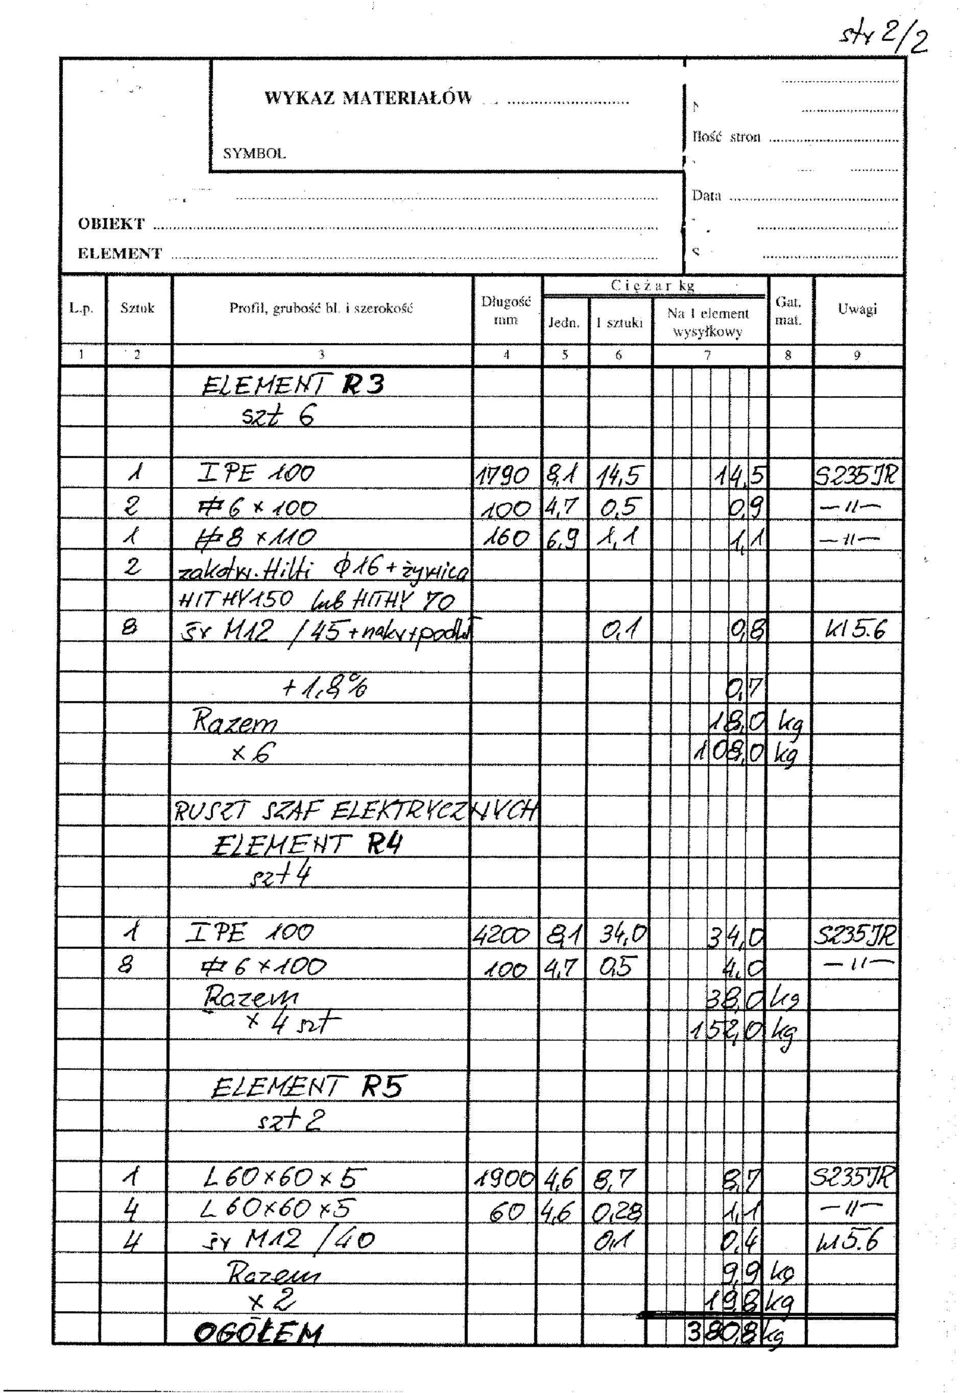 str 2/2
WYKAZ MATERIAŁÓW
SYMBOL
Ilość stron
Data
OBIEKT
ELEMENT
S
L.p. Sztuk Profil, grubość bl. i szerokość Długość mm Ciężar kg Jedn. 1 sztuki Na 1 element wysyłkowy Gat. mat. Uwagi
1 2 3 4 5 6 7 8 9
ELEMENT R3
szt 6
1 IPE 100 1790 8,1 14,5 14,5 S235JR
2 # 6 x 100 100 4,7 0,5 0,9 —〃—
1 # 8 x 110 160 6,9 1,1 1,1 —〃—
2 zakotw. Hilti Φ16 + żywica
HIT HY150 lub HIT HY 70
8 śr M12 /45 + nakr + podkł 0,1 0,8 kl 5.6
+ 1,8% 0,7
Razem 18,0 kg
x 6 108,0 kg
RUSZT SZAF ELEKTRYCZNYCH
ELEMENT R4
szt 4
1 IPE 100 4200 8,1 34,0 34,0 S235JR
8 # 6 x 100 100 4,7 0,5 4,0 —〃—
Razem 38,0 kg
x 4 szt 152,0 kg
ELEMENT R5
szt 2
1 L 60 x 60 x 5 1900 4,6 8,7 8,7 S235JR
4 L 60 x 60 x 5 60 4,6 0,28 1,1 —〃—
4 śr M12 /40 0,1 0,4 kl 5.6
Razem 9,9 kg
x 2 19,8 kg
OGÓŁEM 380,8 kg